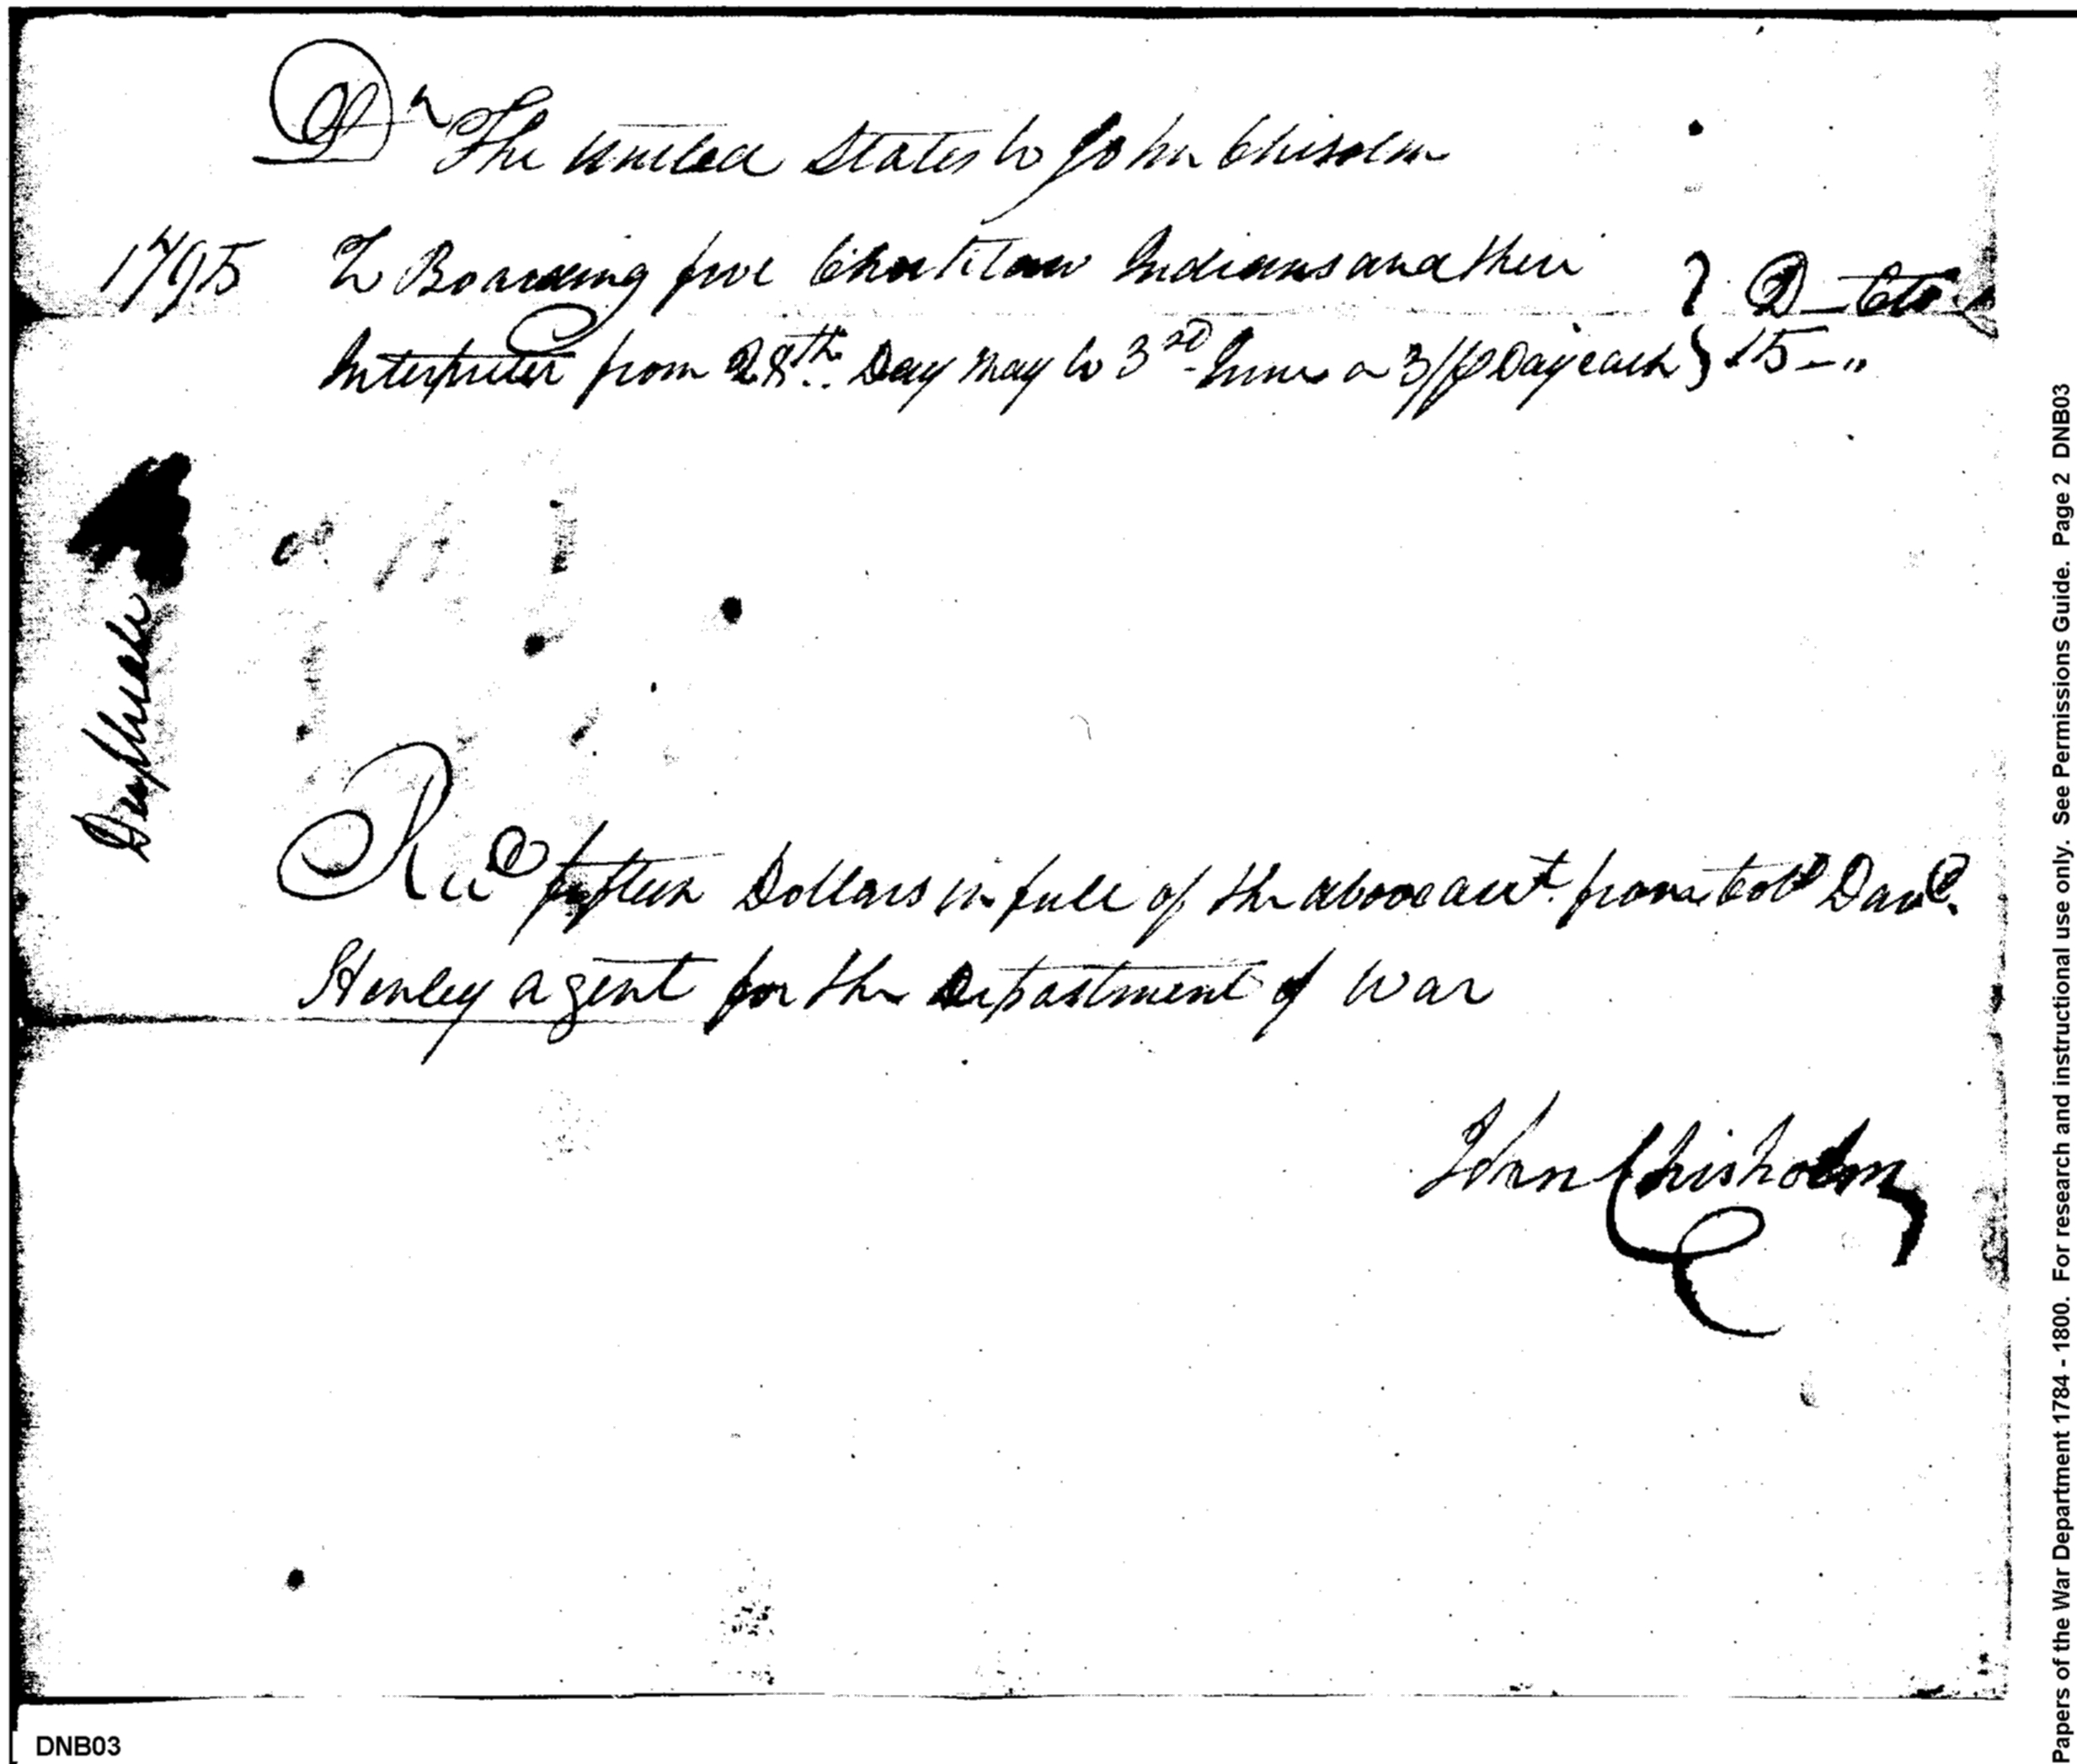 Dr The United States to John Chisolm
1795 To Boarding five Chocktaw Indians and their } D - Cts
Interpreter from 28th Day May to 3rd June a 3/ P Day each } 15 - "
Duplicate
Recd fifteen Dollars in full of the above acct. from Colo Davd.
Henley agent for the Department of War
John Chisholm
DNB03
Papers of the War Department 1784 - 1800. For research and instructional use only. See Permissions Guide. Page 2 DNB03